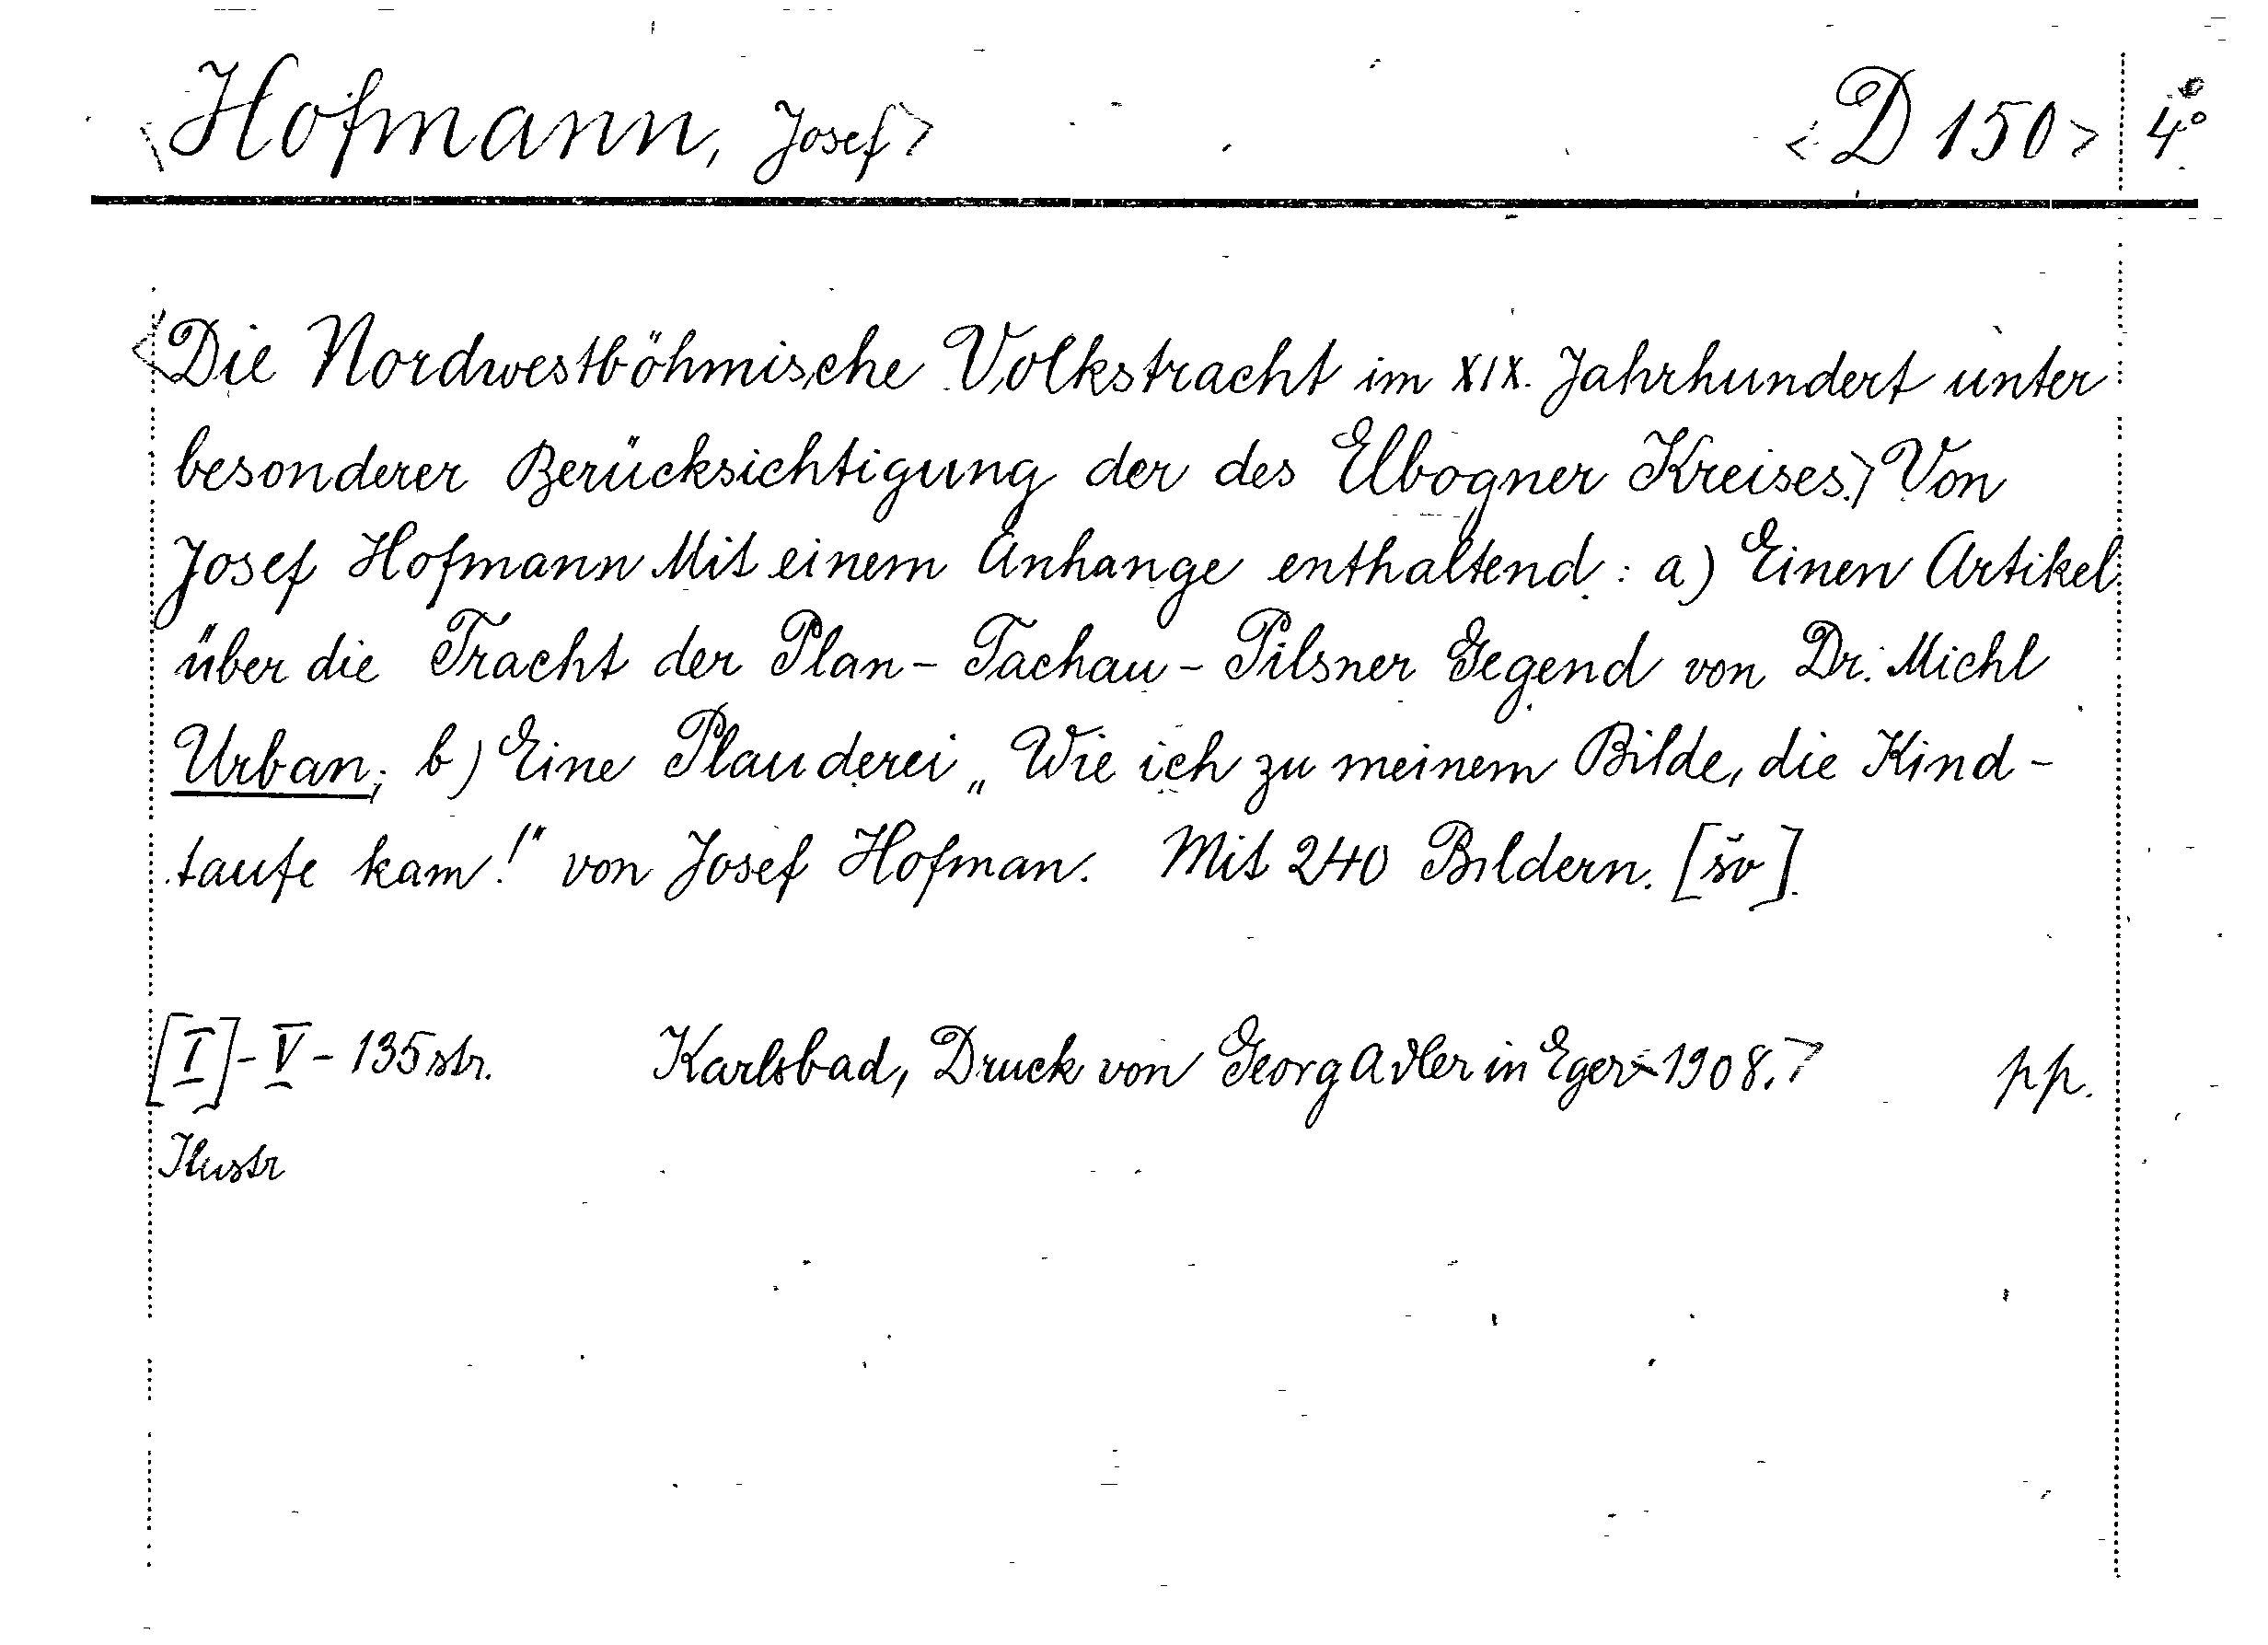 <Hofmann, Josef> <D 150> 4°
<Die Nordwestböhmische Volkstracht im XIX. Jahrhundert unter
besonderer Berücksichtigung der des Elbogner Kreises.> Von
Josef Hofmann Mit einem Anhange enthaltend: a) Einen Artikel
über die Tracht der Plan- Tachau- Pilsner Gegend von Dr. Michl
Urban; b) Eine Plauderei „Wie ich zu meinem Bilde, die Kind-
taufe kam!" von Josef Hofman. Mit 240 Bildern. [šv].
[I]-V- 135 str. Karlsbad, Druck von Georg Adler in Eger <1908.> pp.
Ilustr